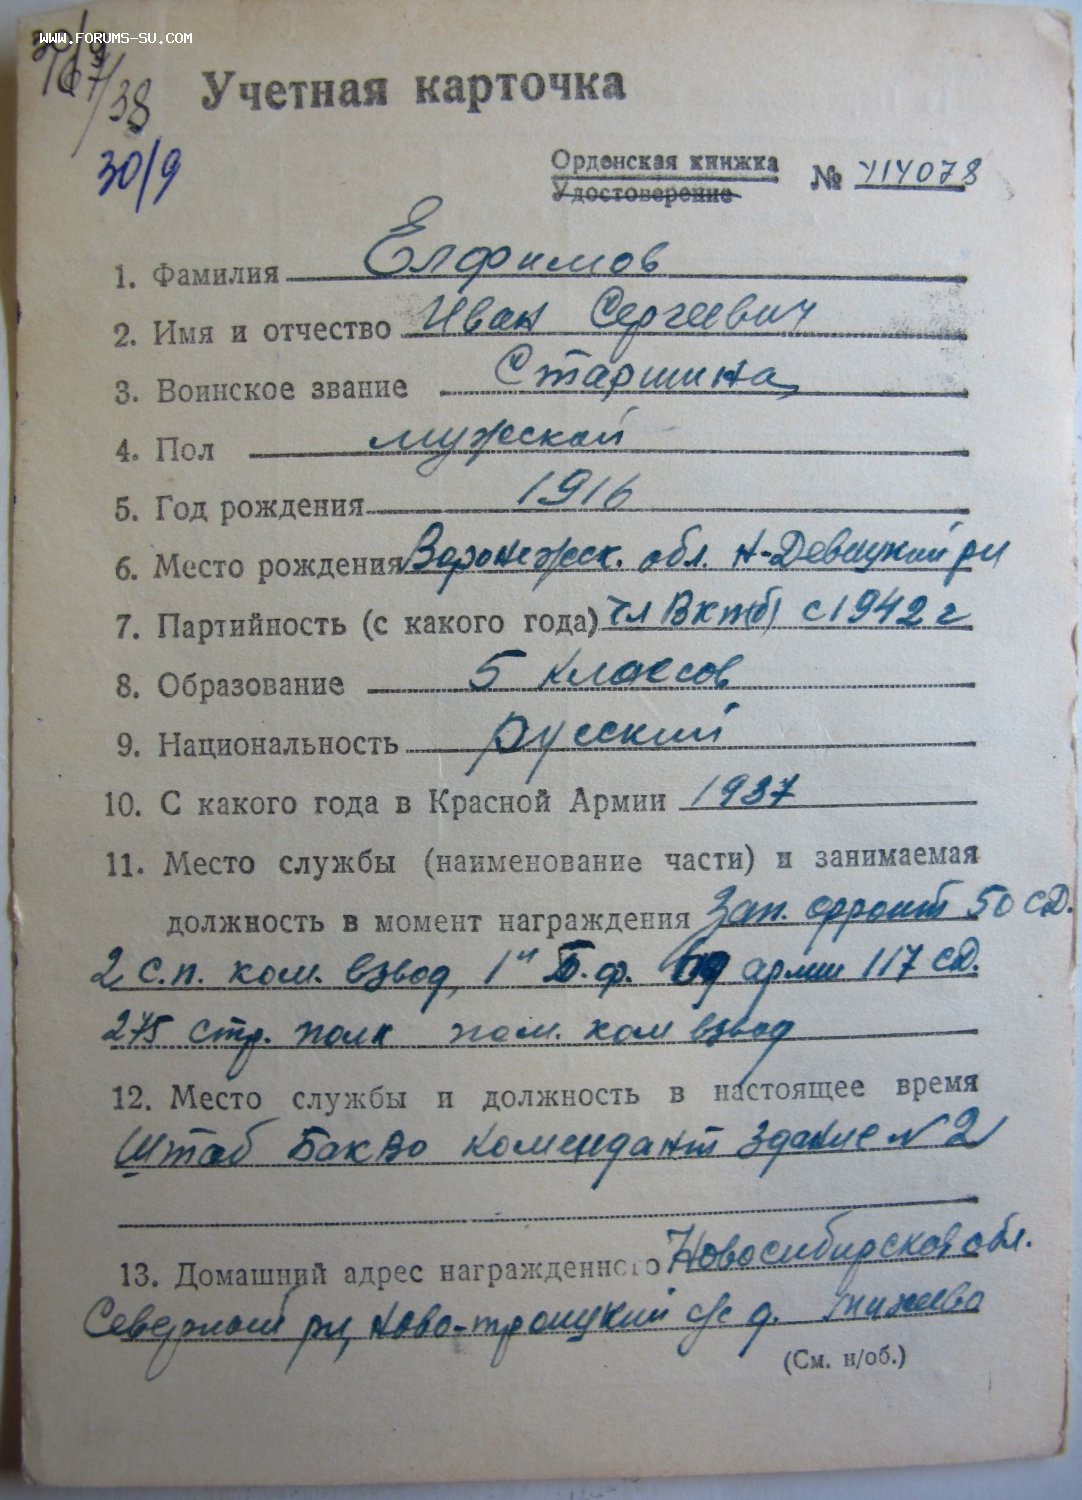 WWW.FORUMS-SU.COM
/38
30/9
Учетная карточка
Орденская книжка
Удостоверение
№ 414078
1. Фамилия Елфимов
2. Имя и отчество Иван Сергеевич
3. Воинское звание Старшина
4. Пол мужской
5. Год рождения 1916
6. Место рождения Воронежск. обл. Н-Девицкий рн
7. Партийность (с какого года) чл ВКП(б) с 1942 г
8. Образование 5 классов
9. Национальность русский
10. С какого года в Красной Армии 1937
11. Место службы (наименование части) и занимаемая
должность в момент награждения Зап. фронт 50 сд.
2 с.п. ком. взвод, 1й Б.ф. 69 арми 117 сд.
275 стр. полк пом. ком взвод
12. Место службы и должность в настоящее время
Штаб БакВо комендант здание N 2
13. Домашний адрес награжденного Новосибирской обл.
Северный рн, Ново-троицкий с/с д.
(См. н/об.)